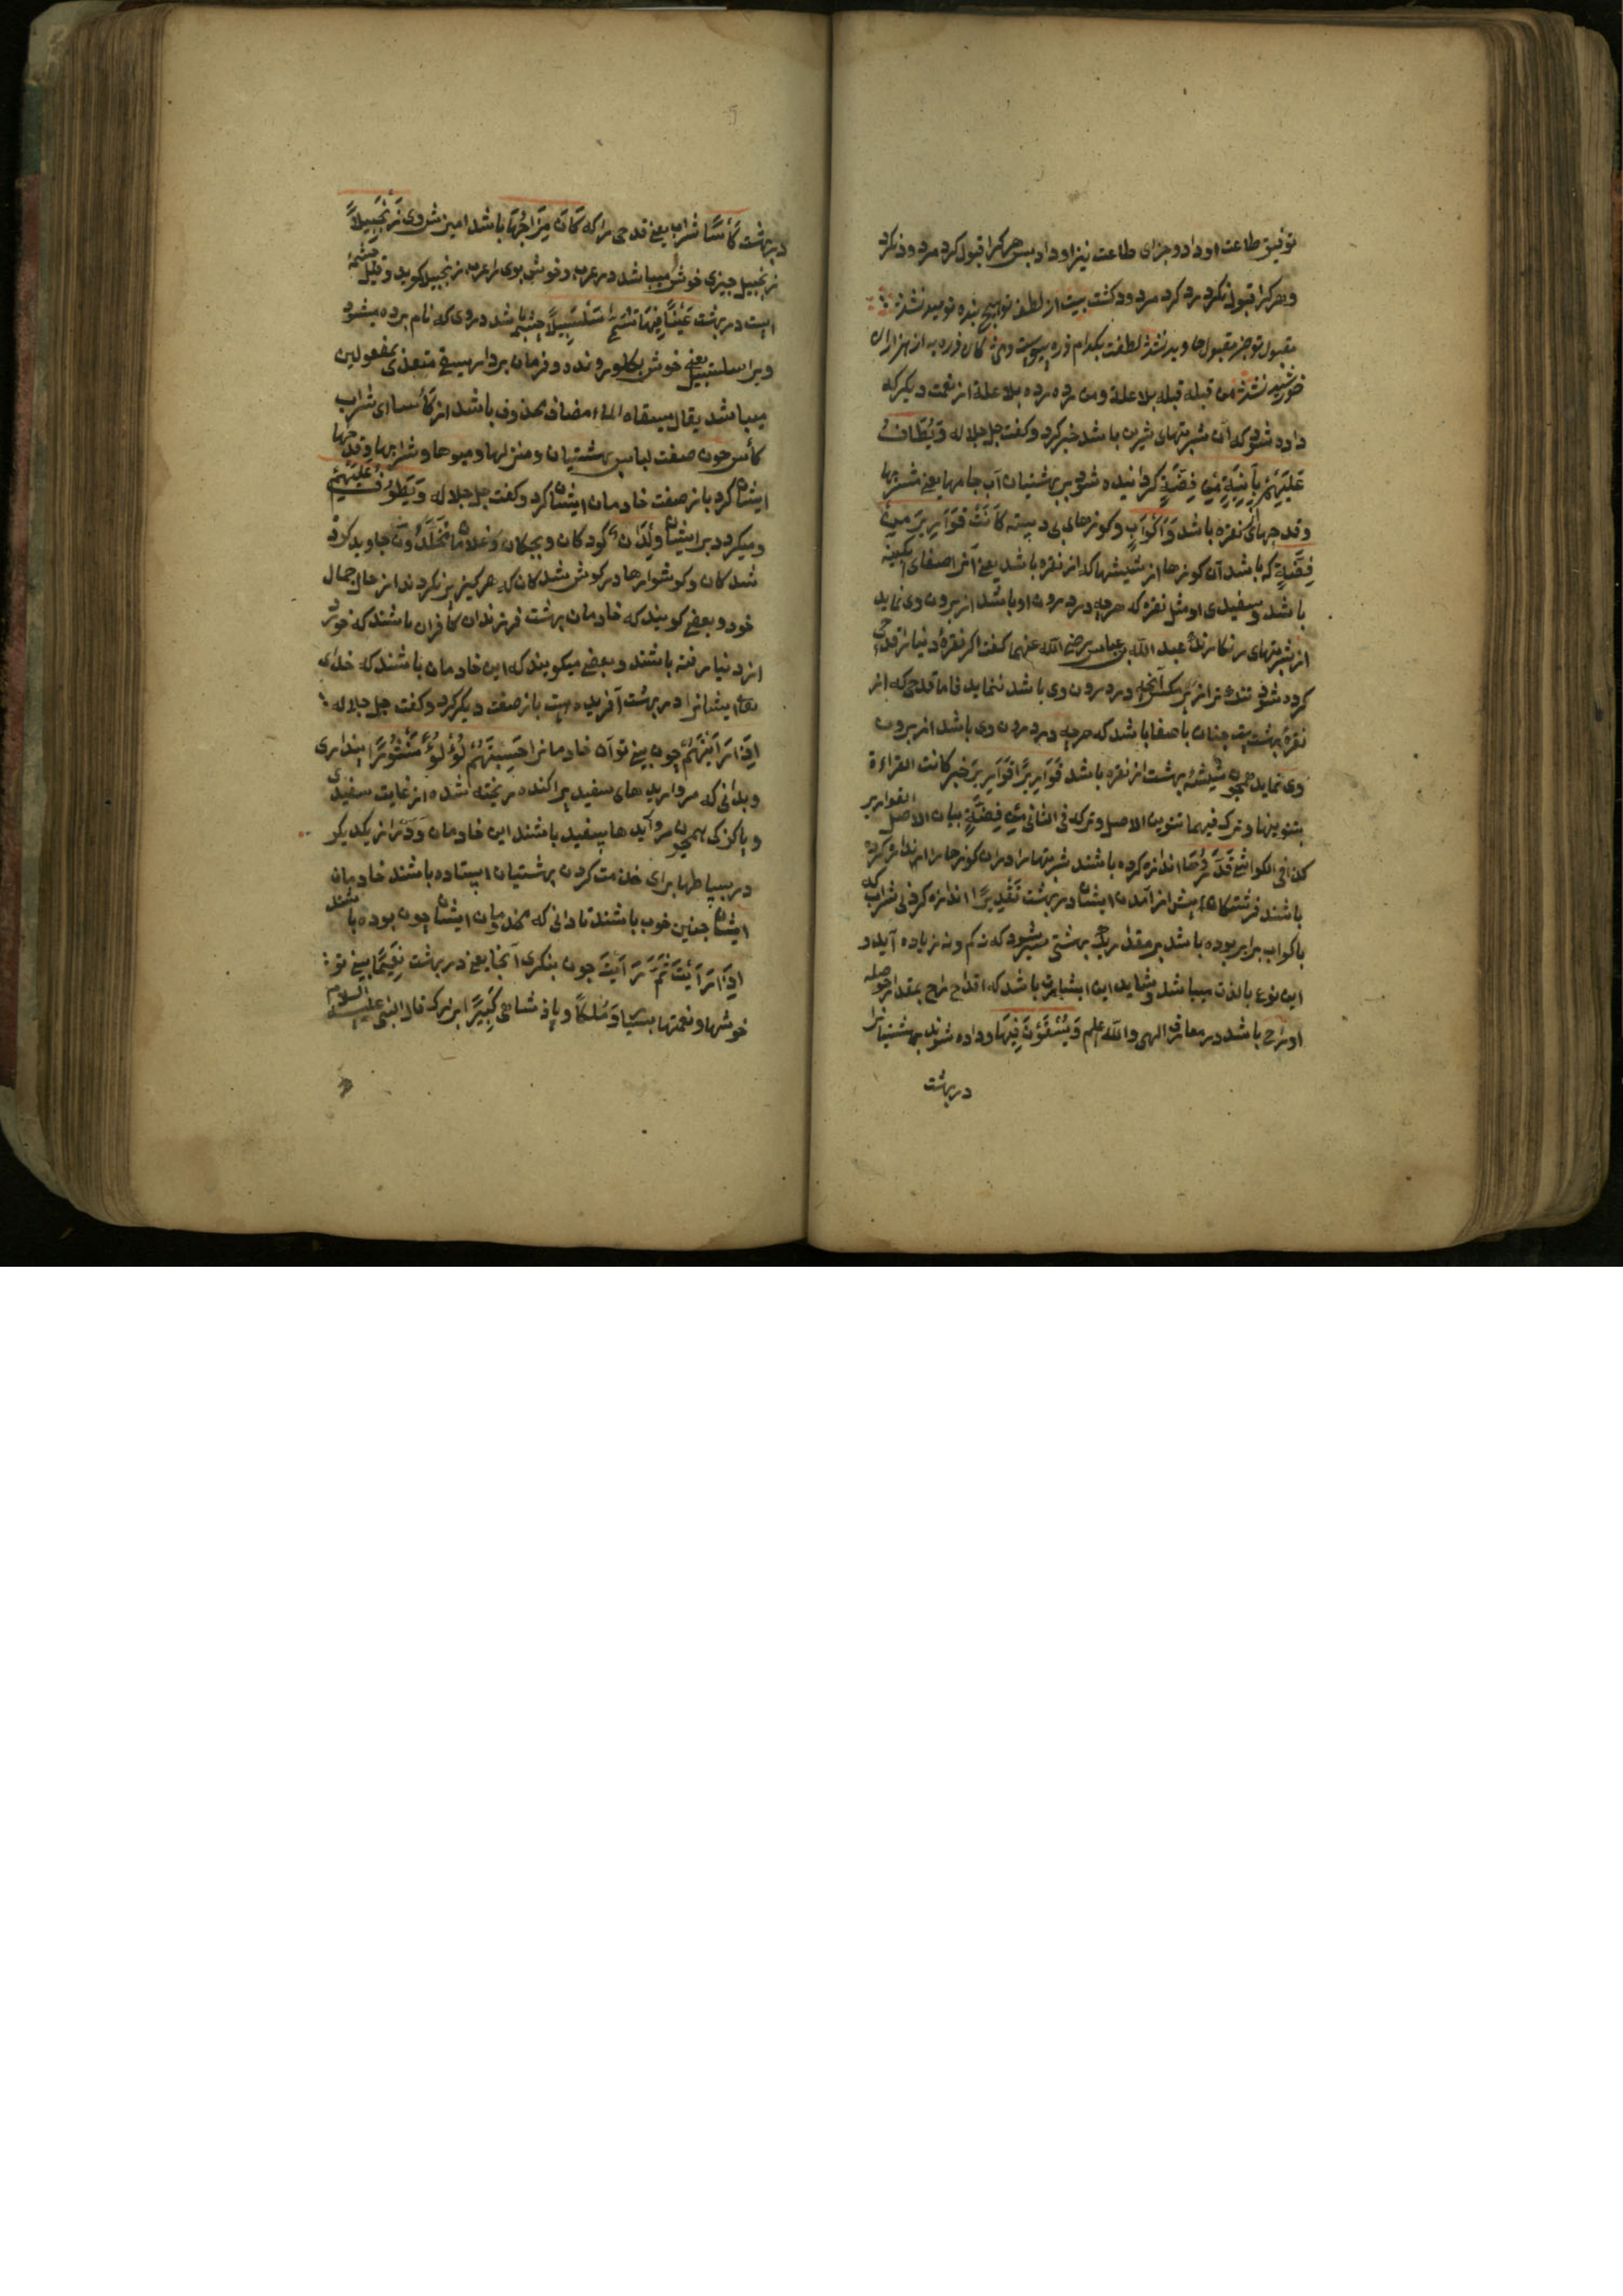 توفیق طاعت او داد و جزای طاعت نیز او داد بس هر کرا قبول کرد مردود نکرد
و هر کرا قبول نکرد رد کرد مردود کشت بیت از لطف تو هیچ بنده نومید نشد
مقبول تو جز مقبل جاوید نشد لطفت بکدام ذره پیوست دمی کان ذره به از هزار
خورشید نشد من قبله قبله بلا علة و من رده رده بلا علة از نعمت دیکر که
داده شود که آن شربتهای شیرین باشد خبر کرد و کفت جل جلاله وَیُطَافُ
عَلَیْهِمْ بِآنِیَةٍ مِنْ فِضَّةٍ کردانیده شود بر بهشتیان آب جامها یعنی مشربها
و قدحهای نقره باشد وَاَکْوَابٍ و کوزهای بی دسته کَانَتْ قَوَارِیرَ مِنْ
فِضَّةٍ که باشد آن کوزها از شیشها که از نقره باشد یعنی آخر اصفای آبکینه
باشد و سفیدی او مثل نقره که هرچه در درون او باشد از برون وی نماید
از شربتهای رنکارنک عبد الله بن عباس رضی الله عنهما کفت اکر نقرۀ دنیا را قدحی
کرده شود تنک تر از پر مکس آنچه در درون وی باشد ننماید فاما قدحی که از
نقرۀ بهشت چنان باصفا باشد که هرچه در درون وی باشد از برون
وی نماید همچون شیشۀ بهشت از نقره باشد قَوَارِیرًا قَوَارِیرَ خبر کانت القراءة
بتنوینها و ترک فیهما تنوین الاصل و ترکه فی الثانی مِنْ فِضَّةٍ بیان الاصل القواریر
کذا فی الکواشی قَدَّرُوهَا اندازه کرده باشند شربتها را در آن کوزها
باشند فرشتکان پیش از آمدن ایشان در بهشت تَقْدِیرًا اندازه کردنی شراب که
با کواب برابر بوده باشد بر مقدار بهشتی میشود که نه کم و نه زیاده آید و
این نوع بالذت میباشد و شاید این اشارت باشد که اقداح راح بمقدار حوصله
ارواح باشد در معارف الهی والله اعلم وَیُسْقَوْنَ فِیهَا و داده شوند بهشتیانرا
در بهشت
در بهشت کَأْسًا شراب یعنی قدحی را که کَانَ مِزَاجُهَا باشد امیزش وی زَنْجَبِیلًا
زنجبیل چیزی خوش میباشد در عرب و خوش بوی را عرب زنجبیل کوید و قیل چشمۀ
است در بهشت عَیْنًا فِیهَا تُسَمَّی سَلْسَبِیلًا چشمه باشد در وی که نام برده میشود
ویرا سلسبیل یعنی خوش بکلو رونده و فرمان بردار سقی متعدی بمفعولین
میباشد یقال سقاه الماء مضاف محذوف باشد از کَأْسًا ای شراب
کأس چون صفت لباس بهشتیان و منزلها و میوها و شرابها و قدحها
ایشان کرد باز صفت خادمان ایشان کرد و کفت جل جلاله وَیَطُوفُ عَلَیْهِمْ
و میکردد بر ایشان وِلْدَانٌ کودکان و بچکان و غلامان مُخَلَّدُونَ جاوید کرد
شدکان و کوشوارها در کوش شدکان که هرکیز بر نکردند از حال جمال
خود و بعضی کویند که خادمان بهشت فرزندان کافران باشند که خورد
از دنیا رفته باشند و بعضی میکویند که این خادمان باشند که خدای
تعالی ایشانرا در بهشت آفریده است باز صفت دیکر کرد و کفت جل جلاله
اِذَا رَاَیْتَهُمْ چون بینی تو آن خادمانرا حَسِبْتَهُمْ لُؤْلُؤًا مَنْثُورًا پنداری
و بدانی که مرواریدهای سفید پراکنده ریخته شده از غایت سفیدی
و پاکزکی همچون مرواریدها سفید باشند این خادمان و دورتر از یکدیکر
در بساطها برای خدمت کردن بهشتیان ایستاده باشند خادمان
ایشان چنین خوب باشند تا دانی که مخدومان ایشان چون بوده باشند
اِذَا رَاَیْتَ ثَمَّ رَاَیْتَ چون بنکری آنجا یعنی در بهشت نَعِیمًا بینی تو
خوشها و نعمتها بسیار وَمُلْکًا و پادشاهی کَبِیرًا بزرک قال النبی علیه السلام